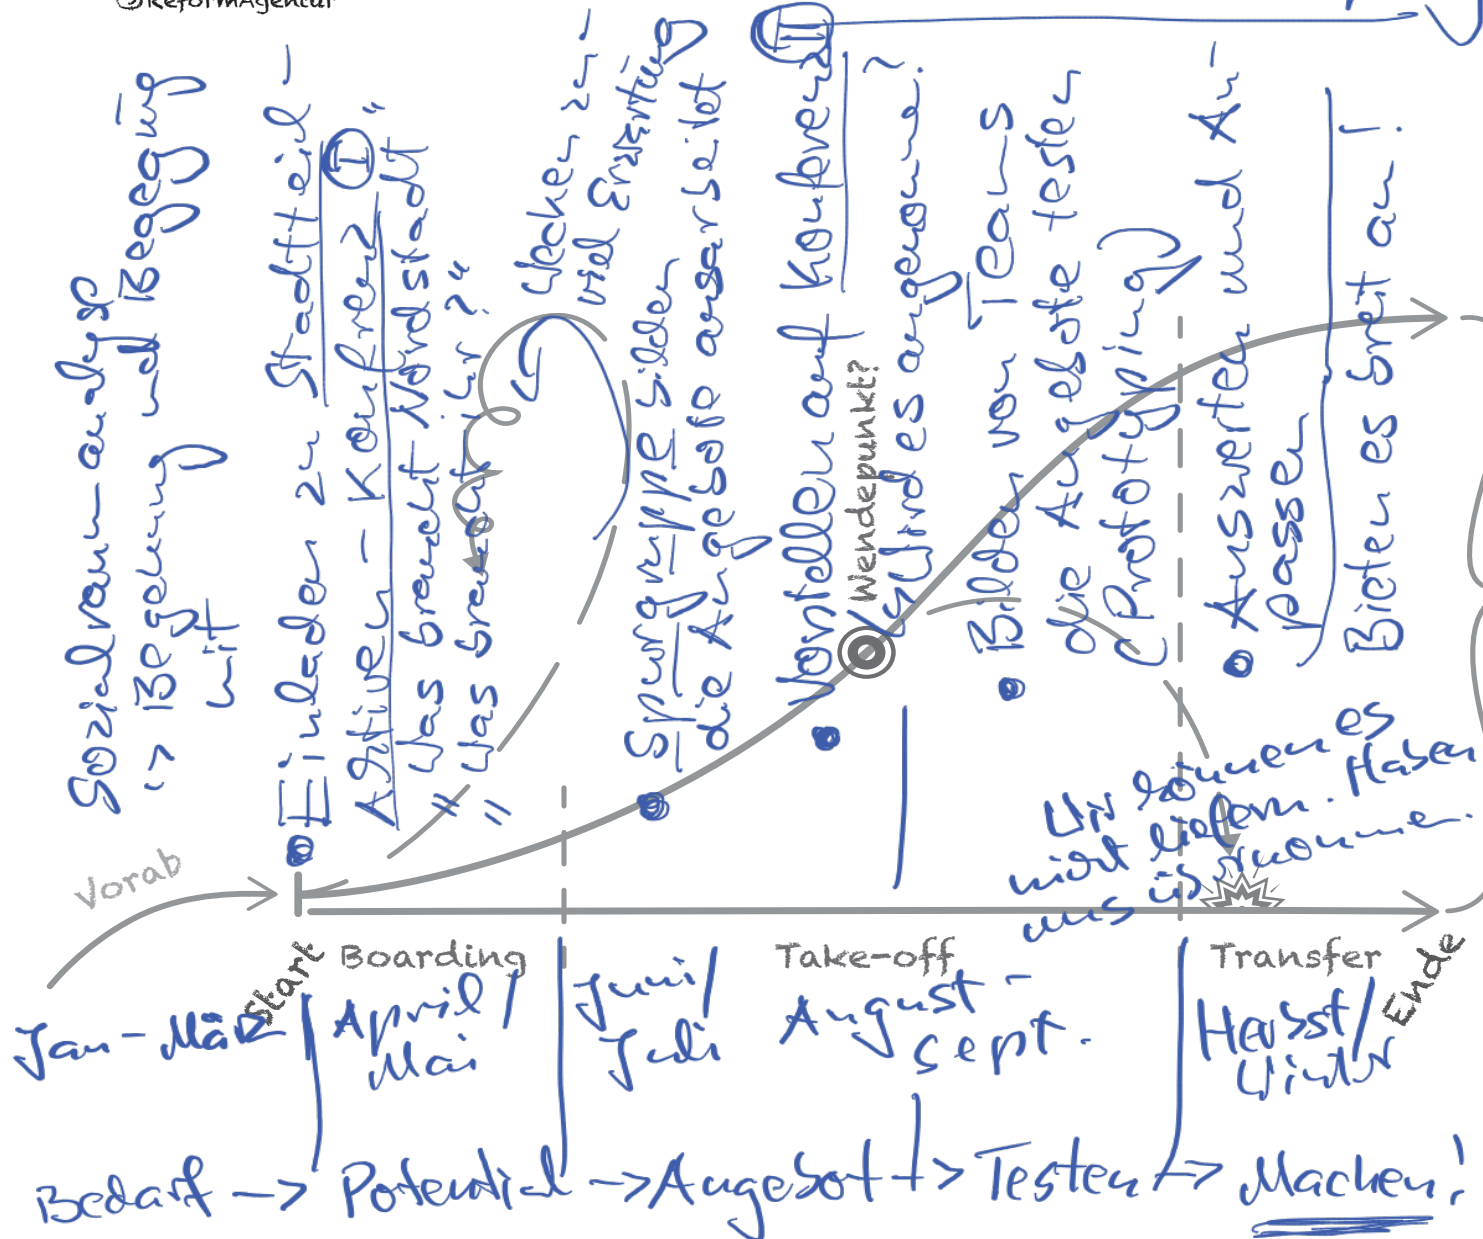 ©ReformAgentur
Sozialraumanalyse
-> Begehung und Begegnung
mit
Einladen zu Stadtteil-
Aktiven-Konferenz I
"Was braucht Nordstadt"
"Was braucht ihr?"
Wecken zu-
viel Erwartung
Spurgruppe bilden
die Angebote ausarbeitet
II
Vorstellen auf Konferenz
Wird es angenomm.?
Wendepunkt?
Bilden von Teams
die Angebote testen
(Prototyping)
Auswerten und An-
passen
Bieten es breit an!
Wir können es
nicht liefern. Haben
uns übernommen.
Vorab
Start
Boarding
Take-off
Transfer
Ende
Jan-März
April/
Mai
Juni/
Juli
August-
Sept.
Herbst/
Winter
Bedarf -> Potential -> Angebot -> Testen -> Machen!